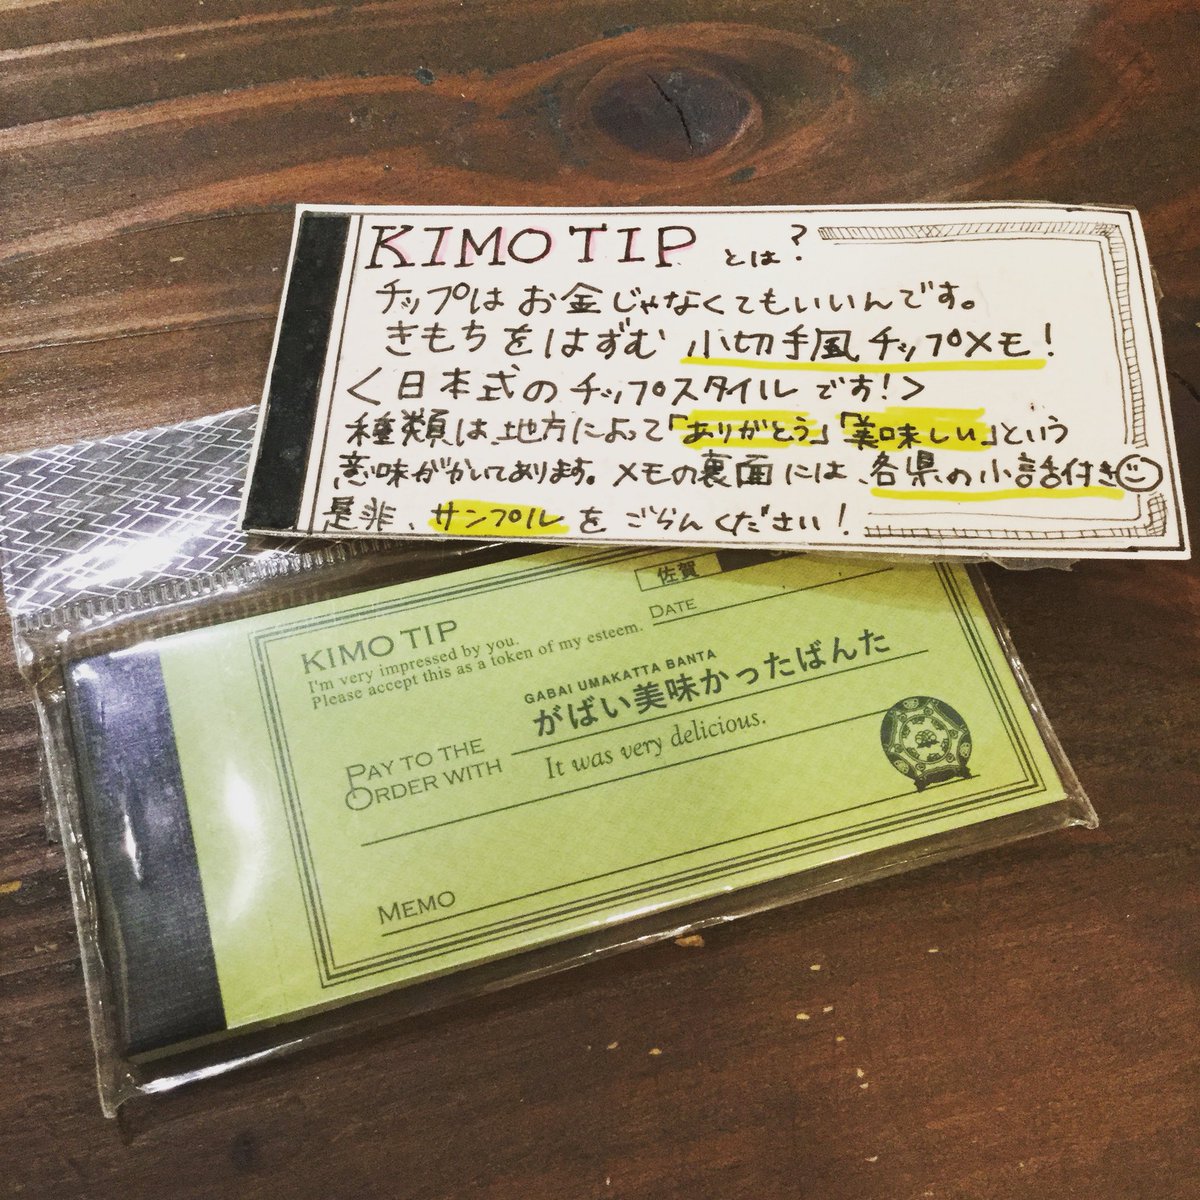 KIMO TIP とは?
チップはお金じゃなくてもいいんです。
きもちをはずむ 小切手風チップメモ!
<日本式のチップスタイルです!>
種類は、地方によって「ありがとう」「美味しい」という
意味がかいてあります。メモの裏面には、各県の小話付き
是非、サンプルをごらんください!
佐賀
KIMO TIP
I'm very impressed by you.
Please accept this as a token of my esteem.
DATE
GABAI UMAKATTA BANTA
PAY TO THE
ORDER WITH
がばい美味かったばんた
It was very delicious.
MEMO